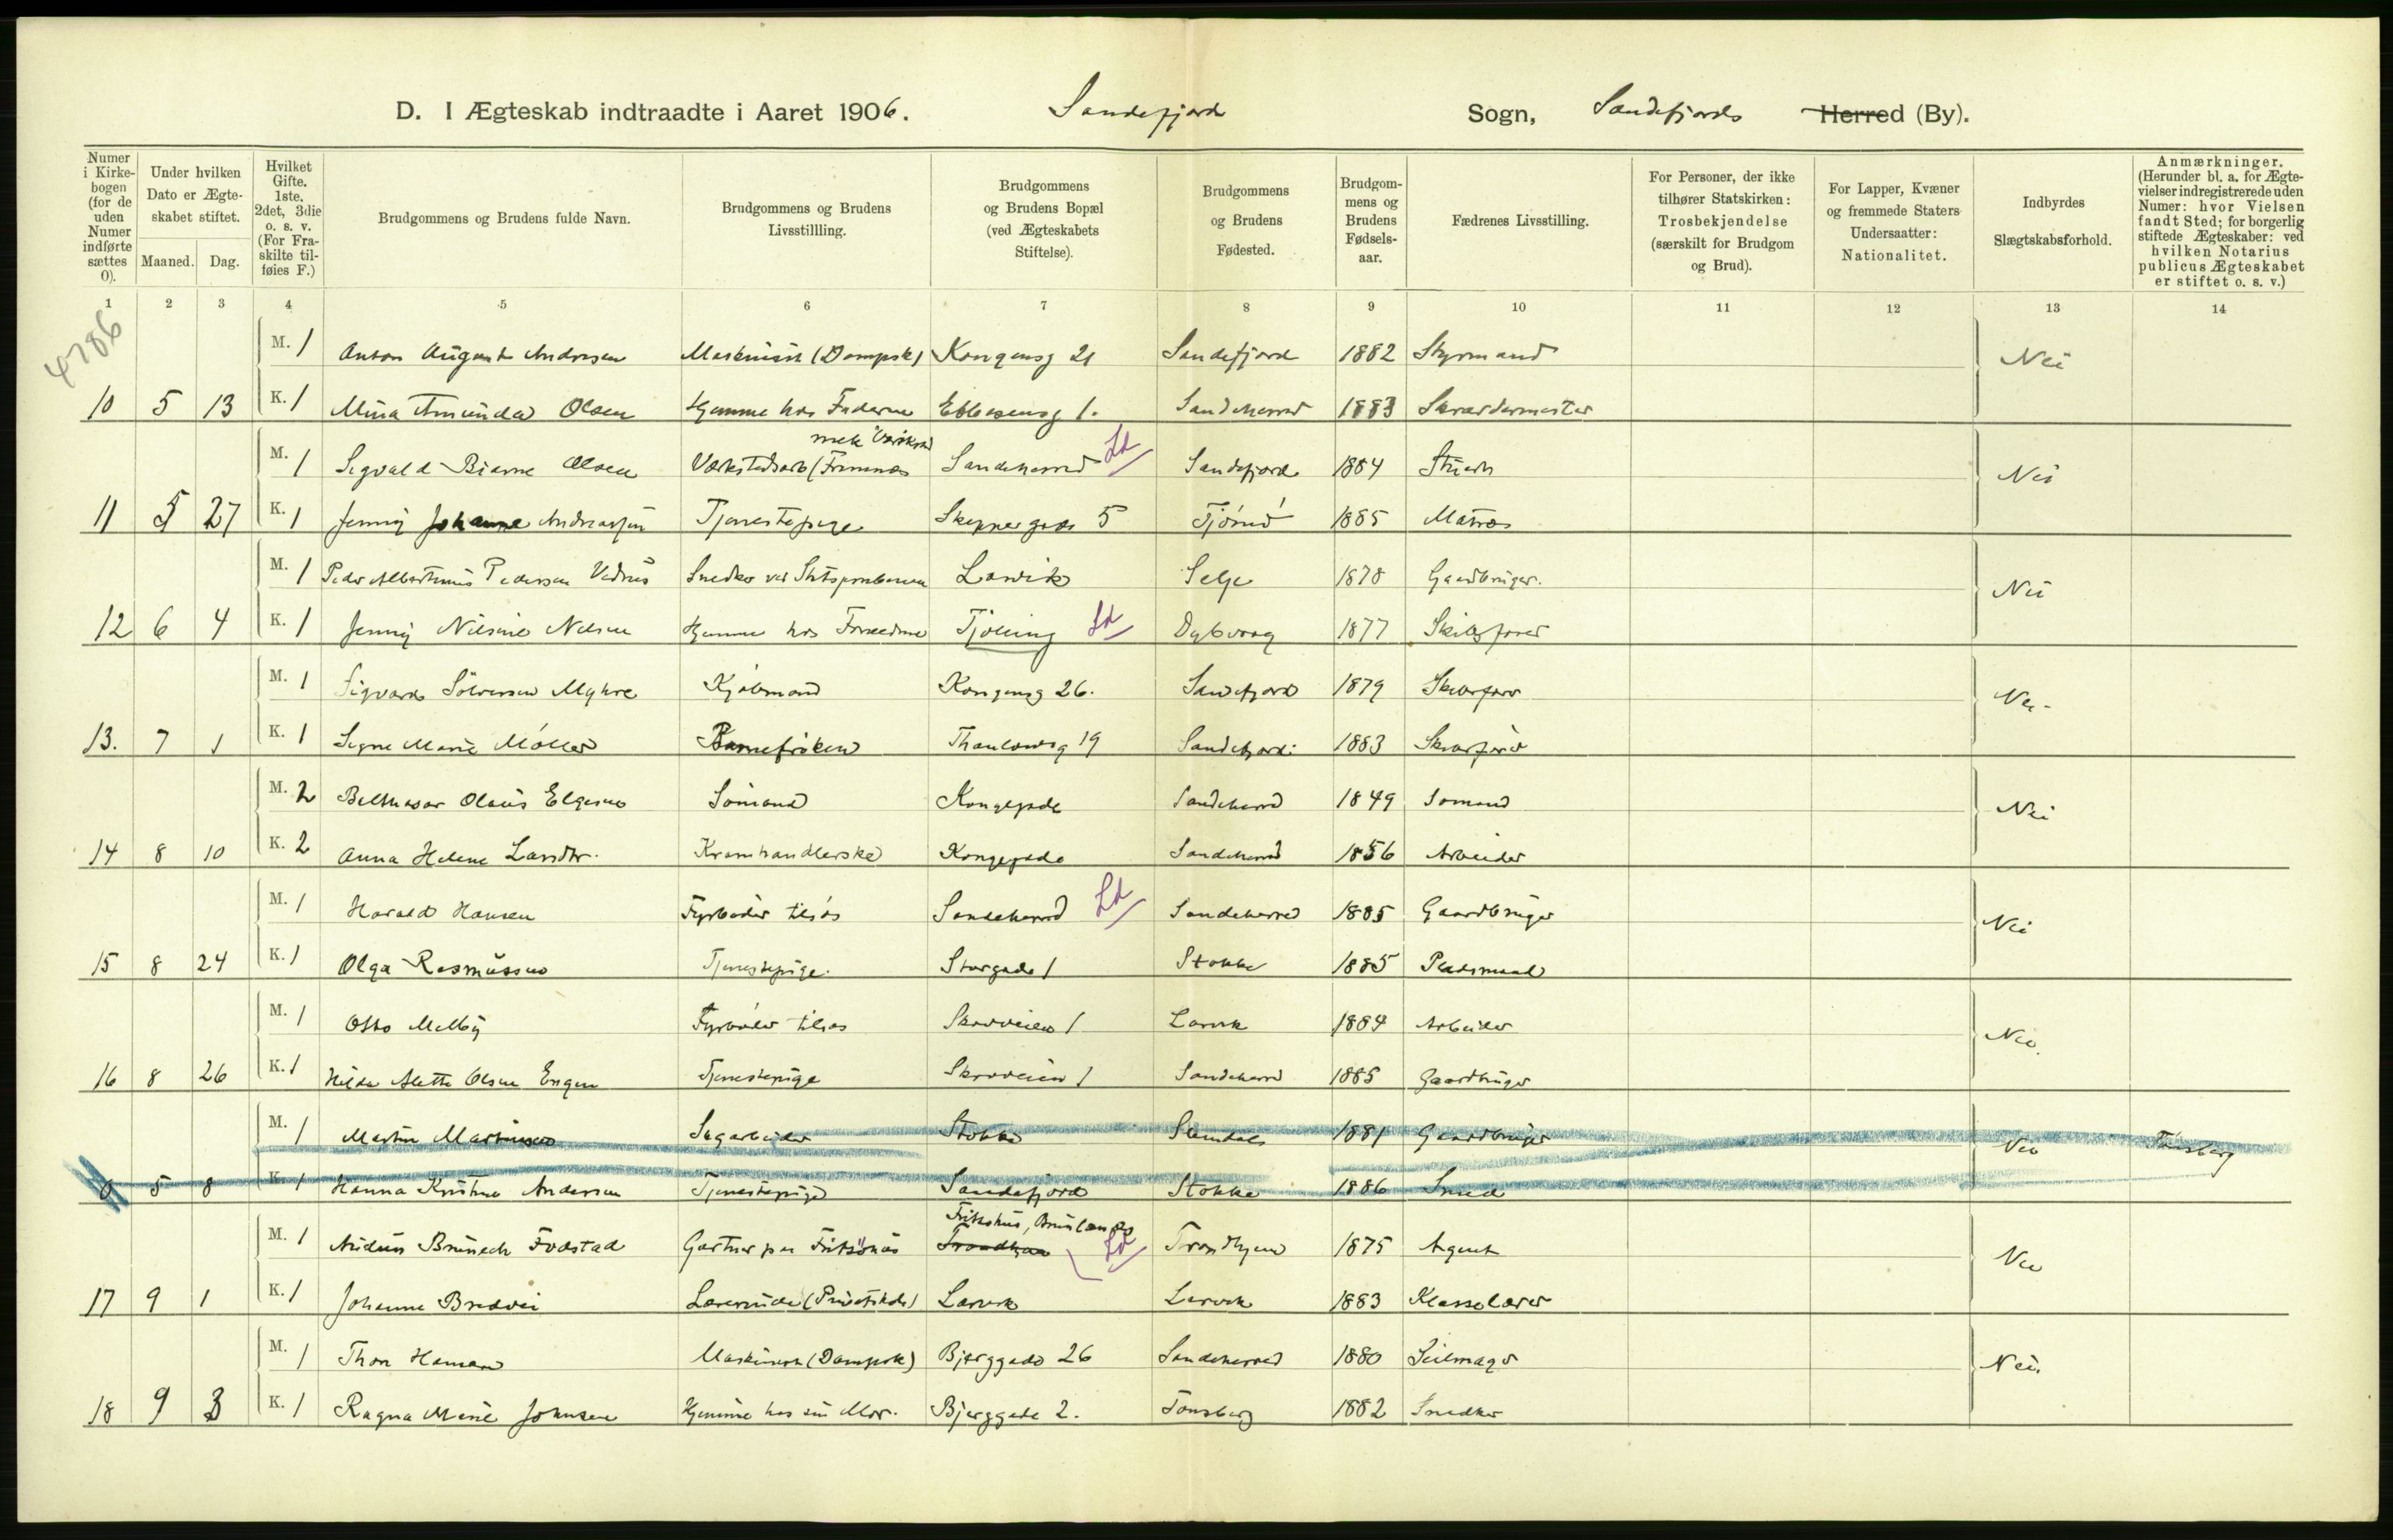 D. I Ægteskab indtraadte i Aaret 1906. Sandefjord Sogn, Sandefjords Herred (By).
Numer i Kirkebogen (for de uden Numer indførte sættes 0).
Under hvilken Dato er Ægteskabet stiftet.
Maaned. Dag.
Hvilket Gifte. 1ste. 2det, 3die o. s. v. (For Fraskilte tilføies F.)
Brudgommens og Brudens fulde Navn.
Brudgommens og Brudens Livsstillling.
Brudgommens og Brudens Bopæl (ved Ægteskabets Stiftelse).
Brudgommens og Brudens Fødested.
Brudgommens og Brudens Fødselsaar.
Fædrenes Livsstilling.
For Personer, der ikke tilhører Statskirken: Trosbekjendelse (særskilt for Brudgom og Brud).
For Lapper, Kvæner og fremmede Staters Undersaatter: Nationalitet.
Indbyrdes Slægtskabsforhold.
Anmærkninger. (Herunder bl. a. for Ægtevielser indregistrerede uden Numer: hvor Vielsen fandt Sted; for borgerlig stiftede Ægteskaber: ved hvilken Notarius publicus Ægteskabet er stiftet o. s. v.)
1 2 3 4 5 6 7 8 9 10 11 12 13 14
4786
M. 1 Anton August Andresen Maskinist (Dampsk) Kongensg 21 Sandefjord 1882 Styrmand Nei
10 5 13 K. 1 Mina Amunda Olsen Hjemme hos Faderen 1. Sandeherred 1883 Skrædermester
mek Værksted
M. 1 Sigvald Bjarne Olsen Værkstedsarb (Framnæs Sandeherred Ld Sandefjord 1884 Nei
11 5 27 K. 1 Jenny Johanne Andreassen Tjenestepige Skippergade 5 Tjömö 1885 Matros
M. 1 Peder Pedersen Snedker ved Larvik Selje 1878 Gaardbruger. Nei
12 6 4 K. 1 Jenny Nilsine Nilsen Hjemme hos Forældrene Tjölling Ld Dybvaag 1877 Skibsfører
M. 1 Sigvard Myhre Kjöbmand Kongensg 26. Sandefjord 1879 Nei
13. 7 1 K. 1 Signe Marie Möller Barnefröken Thaulowsg 19 Sandefjord 1883
M. 2 Balthasar Olaus Elgesen Sömand Kongegade Sandeherred 1849 Sömand Nei
14 8 10 K. 2 Anna Helene Kramhandlerske Kongegade Sandeherred 1856 Arbeider
M. 1 Harald Hansen Fyrböder tilsös Sandeherred Ld Sandeherred 1885 Gaardbruger Nei
15 8 24 K. 1 Olga Rasmussen Tjenestepige. Storgade 1 Stokke 1885 Pladsmand
M. 1 Otto Melby Fyrböder tilsös 1 Larvik 1884 Arbeider Nei
16 8 26 K. 1 Hilda Alette Olsen Engen Tjenestepige 1 Sandeherred 1885 Gaardbruger
M. 1 Martin Martinsen Sagarbeider Stokke 1881 Gaardbruger Nei Tønsberg
0 5 8 K. 1 Hanna Kristine Andersen Tjenestepige Sandefjord Stokke 1886 Smed
M. 1 Gartner Trondhjem Ld Trondhjem 1875 Agent Nei
17 9 1 K. 1 Johanne Bredvei Lærerinde (Privatskole) Larvik Larvik 1883 Klasselærer
M. 1 Thor Hansen Maskinist (Dampsk) Bjerggade 26 Sandeherred 1880 Seilmager Nei.
18 9 3 K. 1 Ragna Marie Johnsen Hjemme hos sin Mor. Bjerggade 2. Tönsberg 1882 Snedker